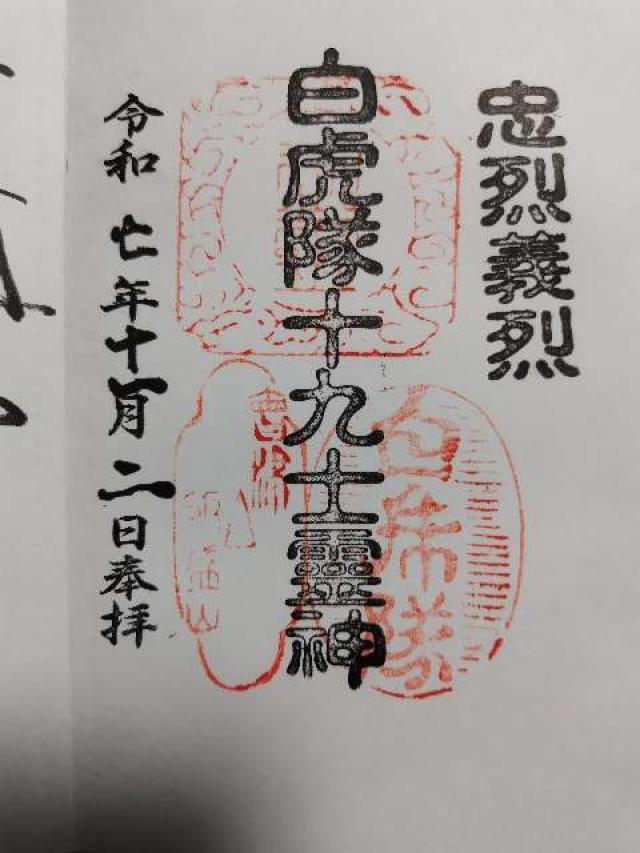 忠烈義烈
白虎隊十九士靈神
令和七年十一月二日奉拝
白虎隊
會津
飯盛山